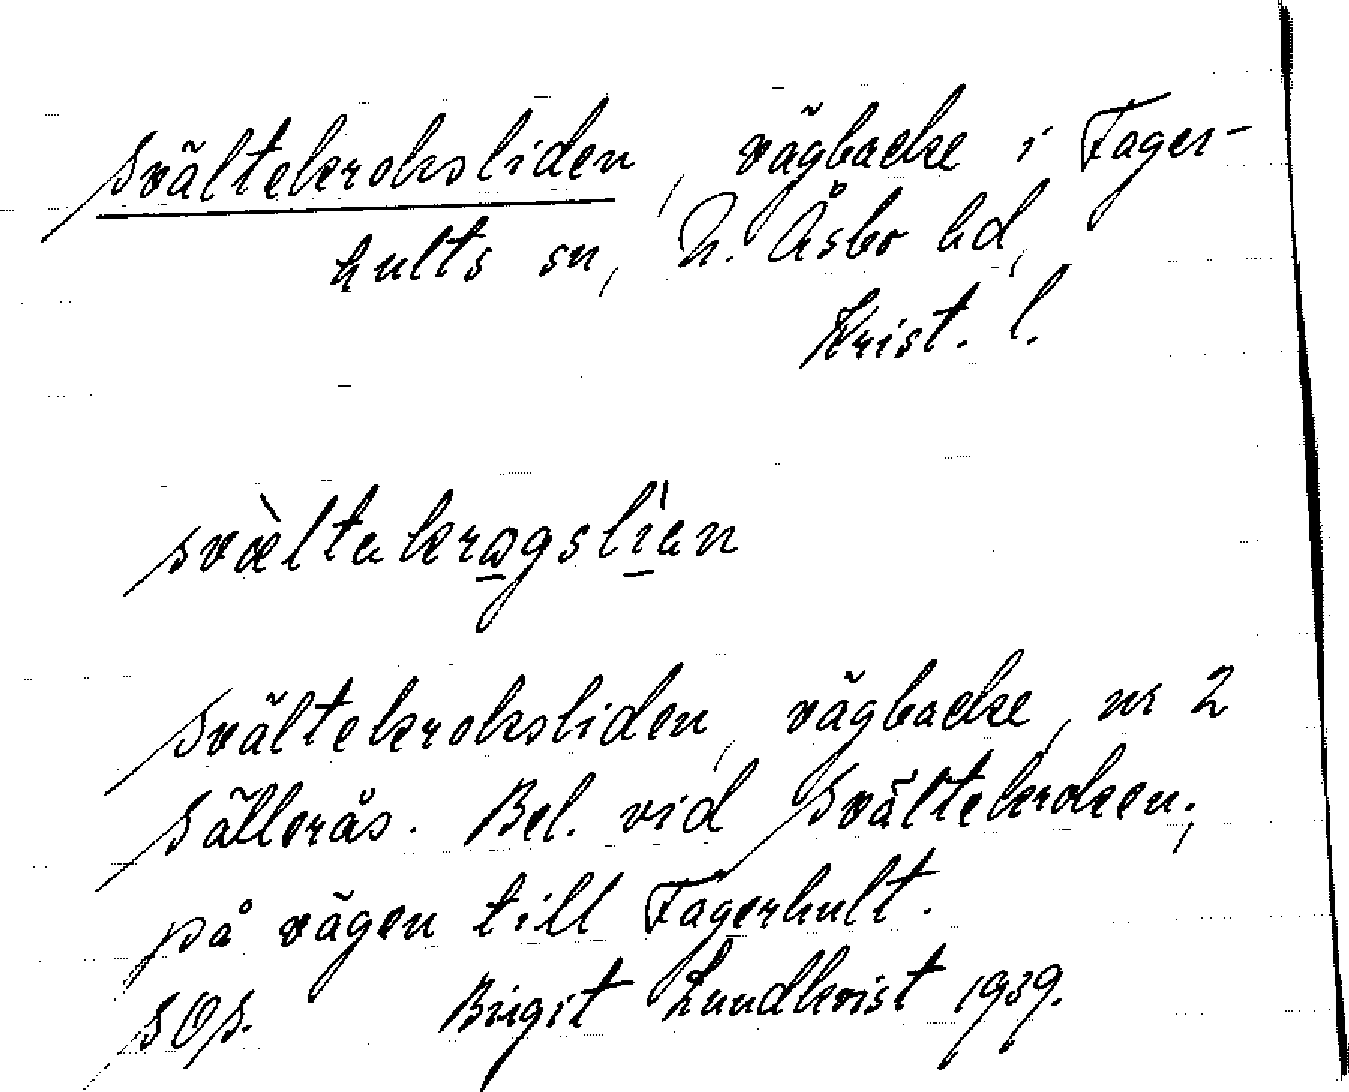 Svältekroksliden, vägbacke i Fager-
hults sn, N. Åsbo hd,
Krist. l.
svæ̀ltakrǫgslìan
Svältekroksliden, vägbacke, nr 2
Sällerås. Bel. vid Svältekroken,
på vägen till Fagerhult.
SOS. Birgit Lundkvist 1939.